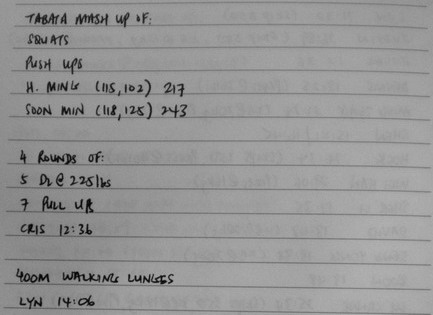 TABATA MASH UP OF:
SQUATS
PUSH UPS
H. MING (115, 102) 217
SOON MIN (118, 125) 243
4 ROUNDS OF:
5 DL @ 225 lbs
7 PULL UPS
CRIS 12:36
400M WALKING LUNGES
LYN 14:06